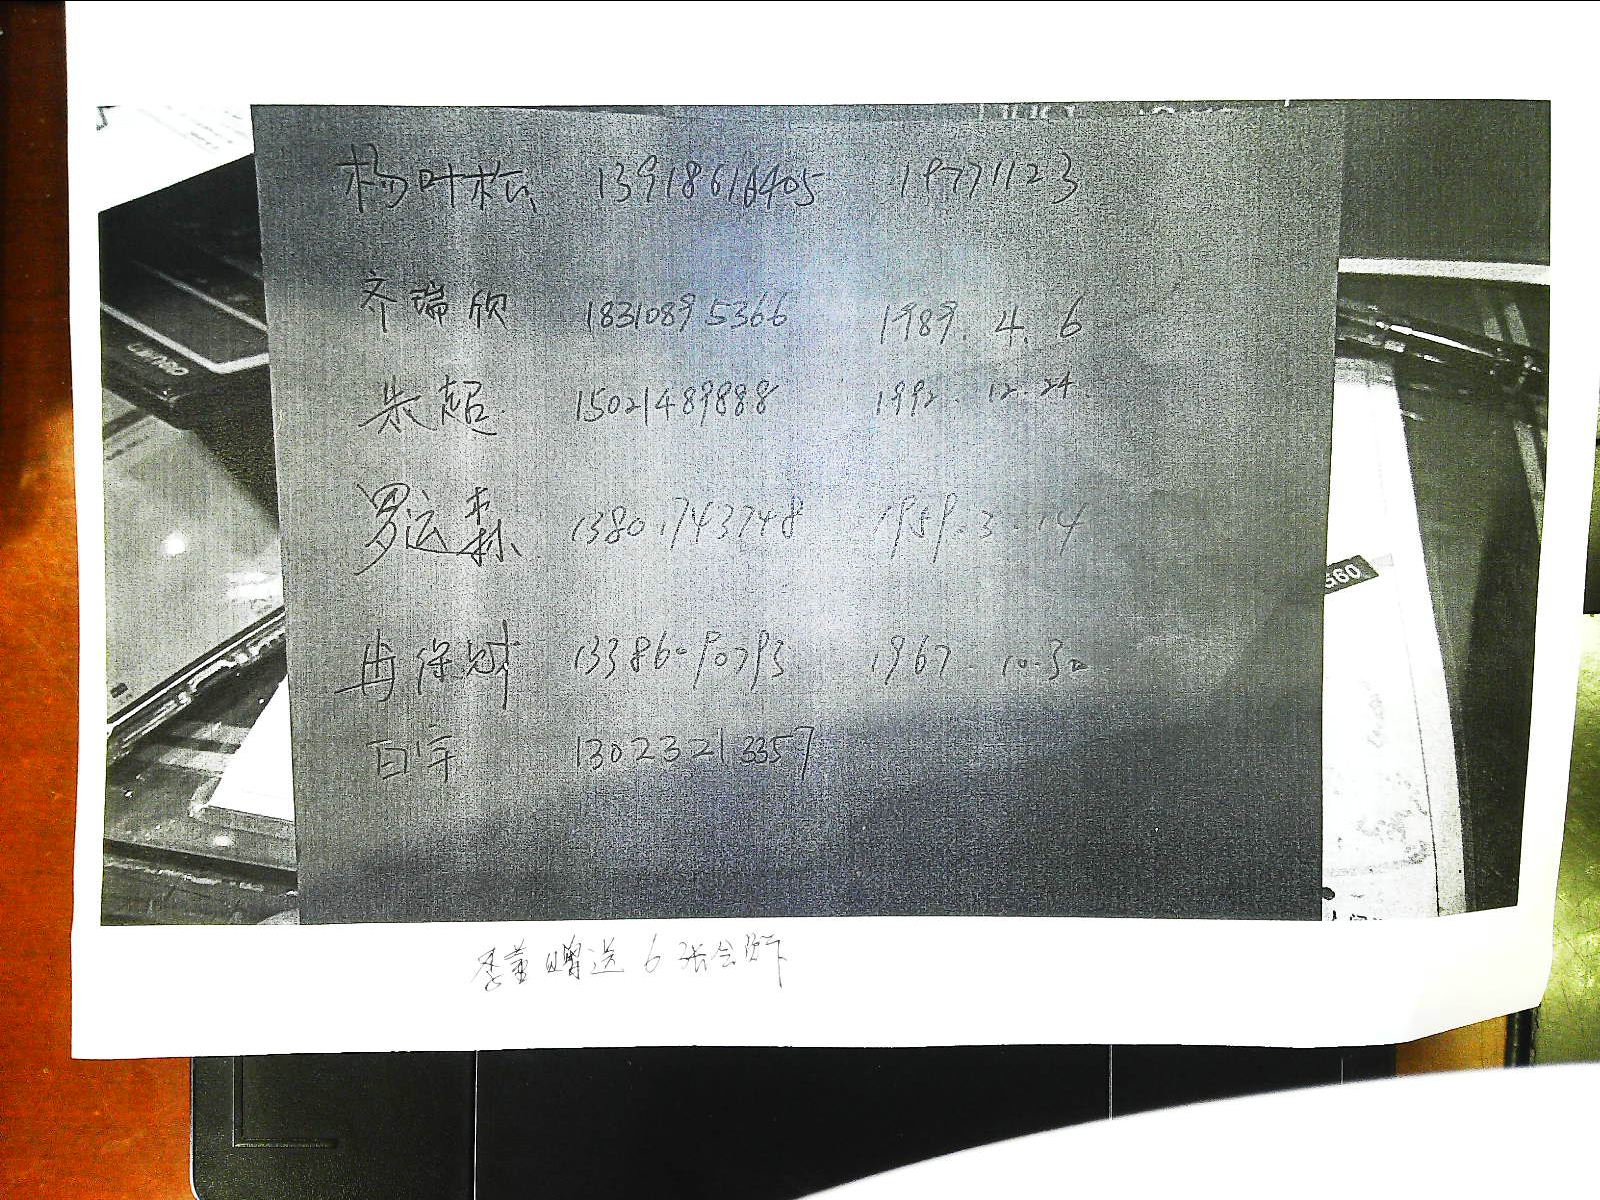 杨叶松 13918616405 19771123
齐瑞欣 18310895366 1989.4.6
朱超 15021489888 1992.12.24
罗运森 13801743748 1959.3.14
冉保财 13386090793 1967.10.30
白宇 13023213357
赠送6张会员卡
G60